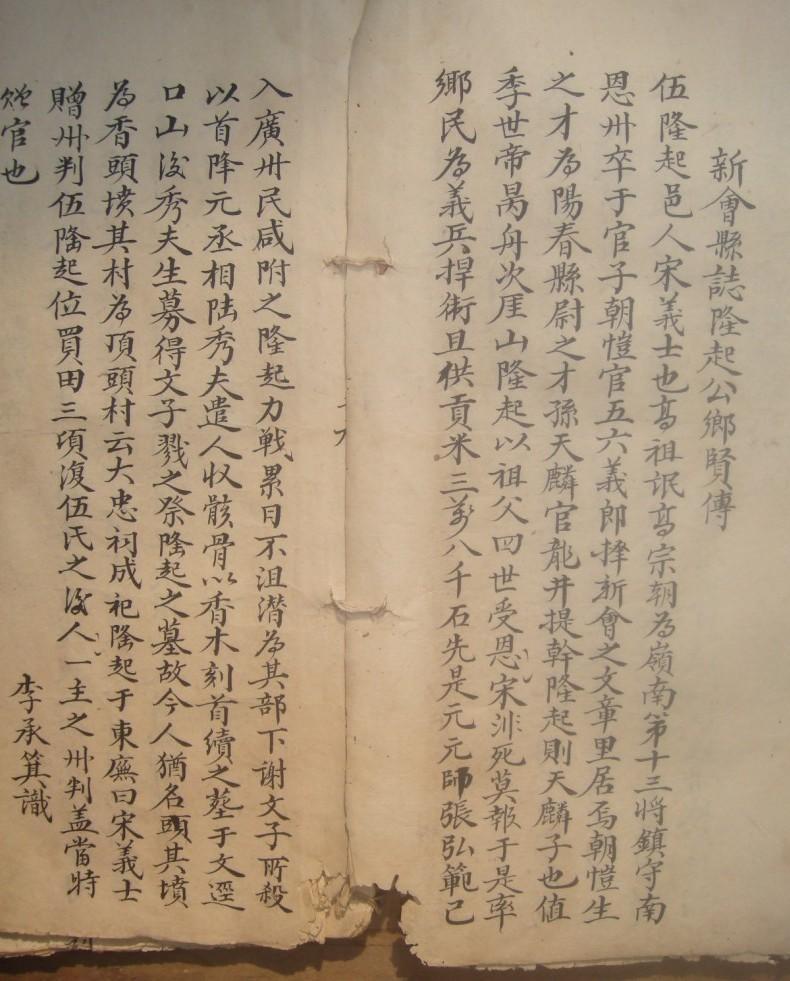 新會縣誌隆起公鄉賢傳
伍隆起邑人宋義士也高祖氓高宗朝為嶺南第十三將鎮守南
恩卅卒于官子朝愷官五六義郎擇新會之文章里居焉朝愷生
之才為陽春縣尉之才孫天麟官龍井提幹隆起則天麟子也值
季世帝昺舟次厓山隆起以祖父四世受恩宋非死莫報于是率
鄉民為義兵捍衛且供貢米三萬八千石先是元元師張弘範已
入廣卅民咸附之隆起力戰累日不沮潛為其部下謝文子所殺
以首降元丞相陆秀夫遣人収骸骨以香木刻首續之塟于文逕
口山後秀夫生募得文子戮之祭隆起之墓故今人猶名頭其墳
為香頭墳其村為頂頭村云大忠祠成祀隆起于東廡曰宋義士
贈卅判伍隆起位買田三頃復伍氏之後人一主之卅判盖當時
贈官也
李承箕識